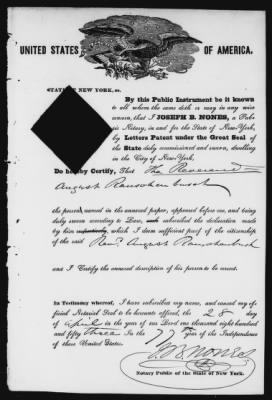 UNITED STATES OF AMERICA.
STATE OF NEW YORK, ss.
By this Public Instrument be it known
to all whom the same doth or may in any wise
concern, that I JOSEPH B. NONES, a Pub-
lic Notary, in and for the State of New-York,
by Letters Patent under the Great Seal of
the State duly commissioned and sworn, dwelling
in the City of New-York,
Do hereby Certify, That The Reverend
August Rauschenbusch
the person named in the annexed paper, appeared before me, and being
duly sworn according to Law, subscribed the declaration made
by him respectively, which I deem sufficient proof of the citizenship
of the said Revd. August Rauschenbusch
and I Certify the annexed description of his person to be correct.
In Testimony whereof, I have subscribed my name, and caused my of-
ficial Notarial Seal to be hereunto affixed, the 28 day
of April in the year of our Lord one thousand eight hundred
and fifty three In the 77th year of the Independence
of these United States.
J B Nones
Notary Public of the State of New York.